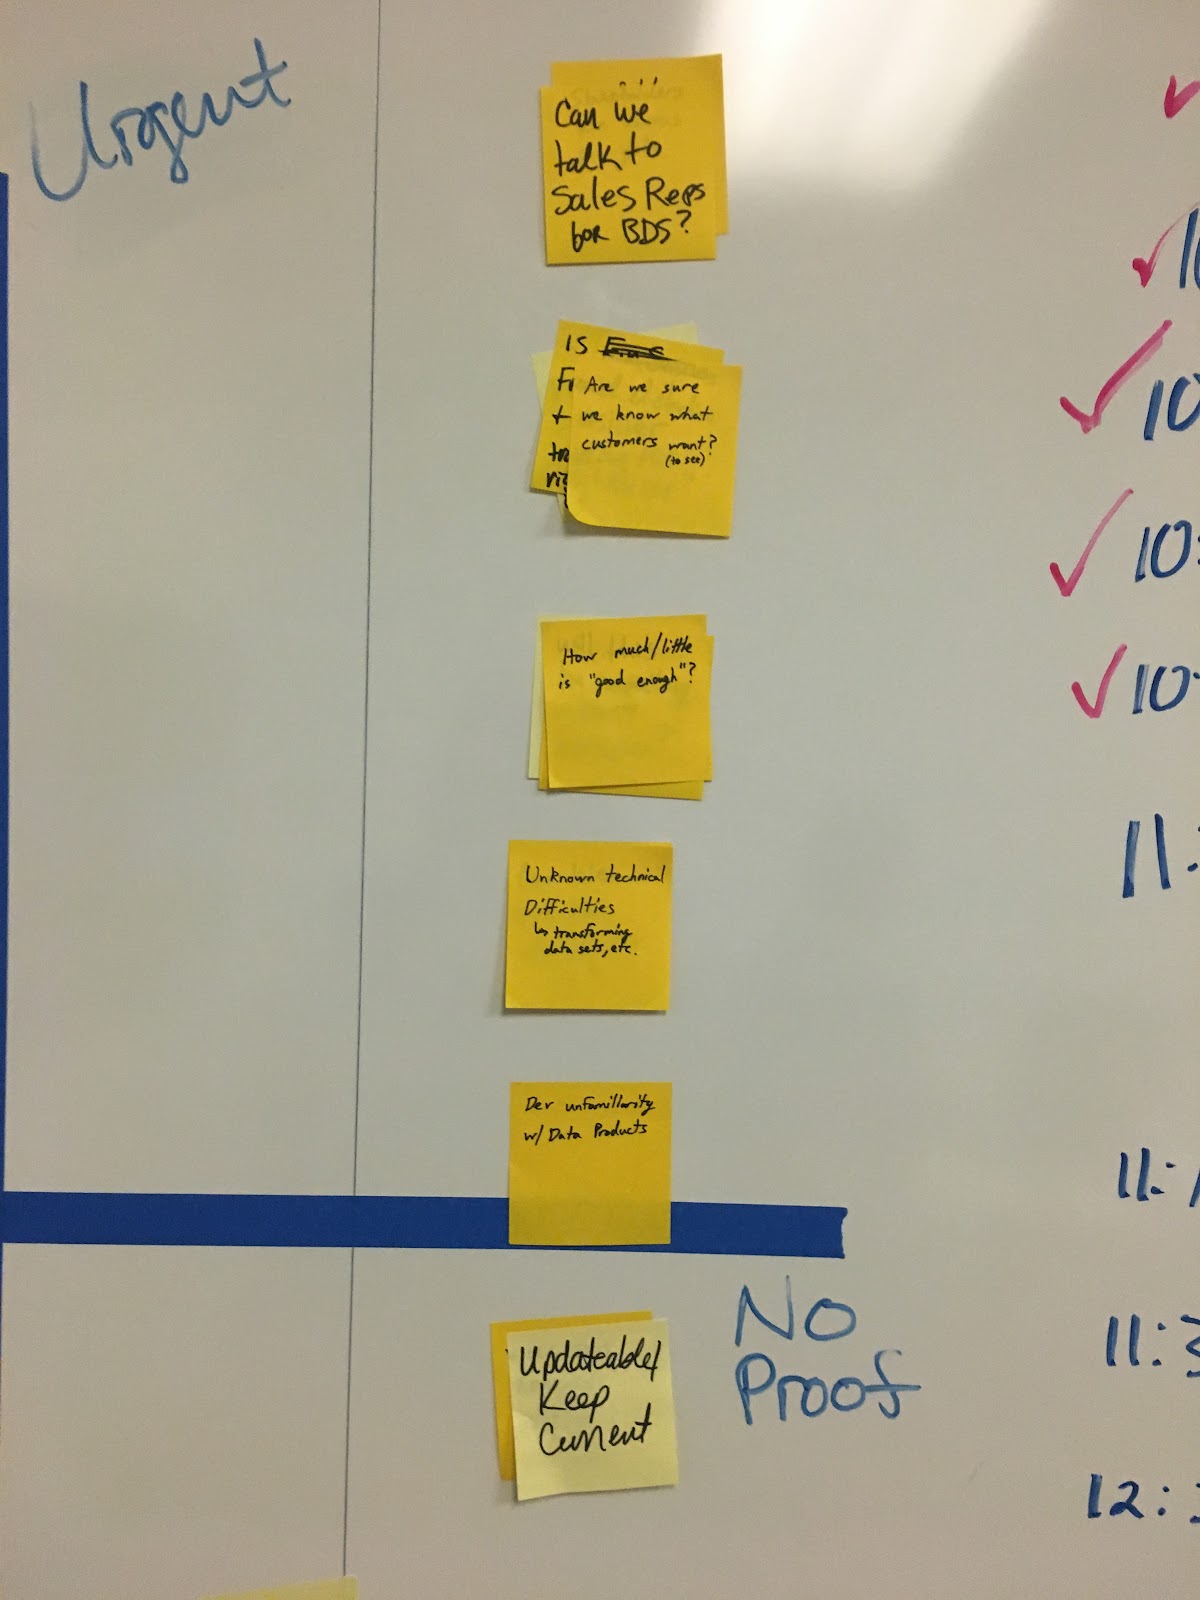 Urgent
Can we
talk to
Sales Reps
for BDS?
Is
Are we sure
we know what
customers want?
(to see)
How much/little
is "good enough"?
Unknown technical
Difficulties
↳ transforming
data sets, etc.
Dev unfamiliarity
w/ Data Products
Updateable/
Keep
Current
No
Proof
10
10:
11:
11:
12: